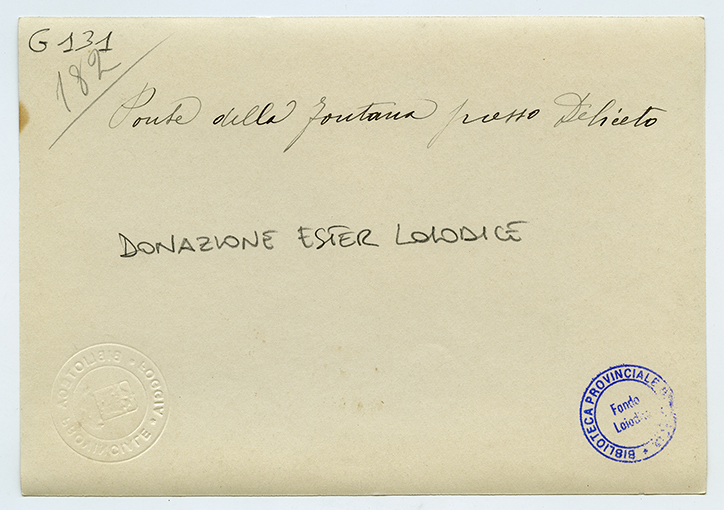 G 131
182
Ponte della Fontana presso Deliceto
DONAZIONE ESTER LOIODICE
BIBLIOTECA PROVINCIALE
Fondo
Loiodice